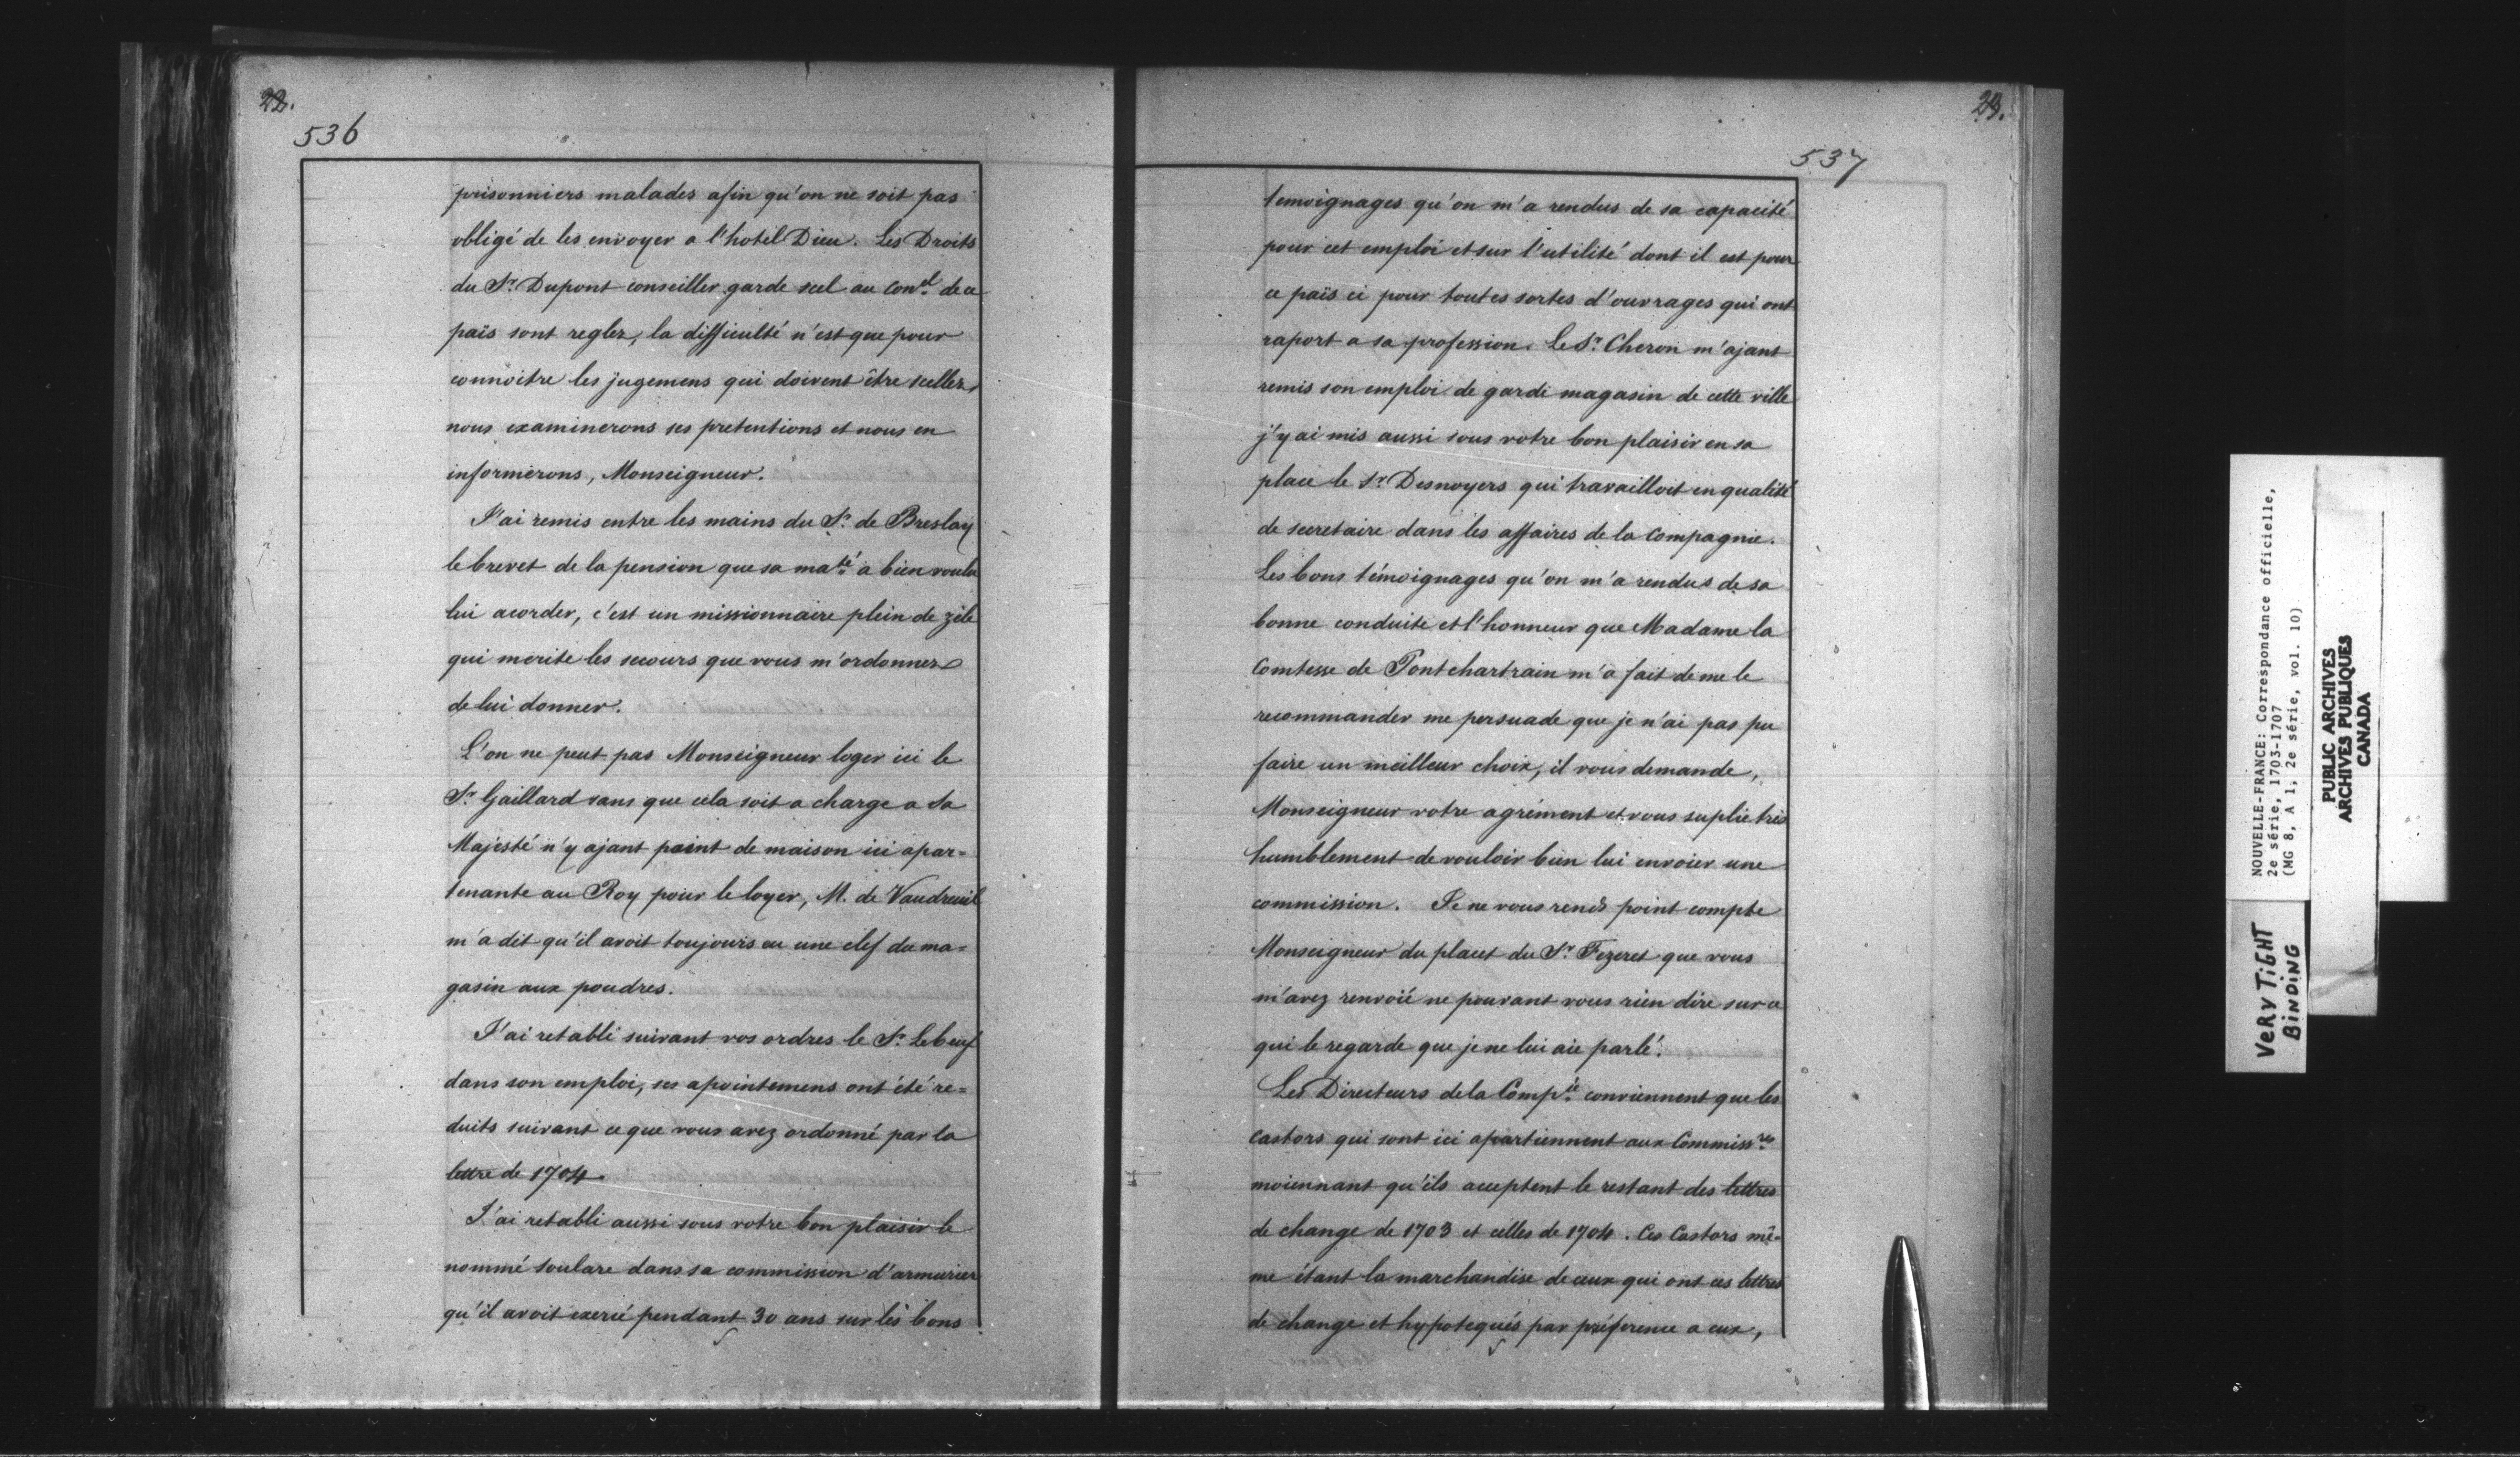 22.
536
prisonniers malades afin qu'on ne soit pas
obligé de les envoyer a l'hotel Dieu. Les Droits
du Sr. Dupont conseiller garde scel au Conel. de ce
païs sont reglez, la difficulté n'est que pour
connoitre les jugemens qui doivent être scellez,
nous examinerons ses pretentions et nous en
informerons, Monseigneur.
J'ai remis entre les mains du Sr. de Breslay
le brevet de la pension que sa maté. a bien voulu
lui acorder, c'est un missionnaire plein de zéle
qui merite les secours que vous m'ordonnez
de lui donner.
L'on ne peut pas Monseigneur loger ici le
Sr. Gaillard sans que cela soit a charge a Sa
Majesté n'y ajant point de maison ici apar=
tenante au Roy pour le loyer, M. de Vaudreuil
m'a dit qu'il avoit toujours eu une clef du ma=
gasin aux poudres.
J'ai retabli suivant vos ordres le Sr. Lebeuf
dans son emploi, ses apointemens ont été re=
duits suivant ce que vous avez ordonné par la
lettre de 1704.
J'ai retabli aussi sous votre bon plaisir le
nommé Soulare dans sa commission d'armurier
qu'il avoit exercé pendant 30 ans sur les bons
23.
537
temoignages qu'on m'a rendus de sa capacité
pour cet emploi et sur l'utilité dont il est pour
ce païs ci pour toutes sortes d'ouvrages qui ont
raport a sa profession. Le Sr. Cheron m'ajant
remis son emploi de garde magasin de cette ville
j'y ai mis aussi sous votre bon plaisir en sa
place le Sr. Desnoyers qui travailloit en qualité
de secretaire dans les affaires de la Compagnie.
Les bons témoignages qu'on m'a rendus de sa
bonne conduite et l'honneur que Madame la
Comtesse de Pontchartrain m'a fait de me le
recommander me persuade que je n'ai pas pu
faire un meilleur choix, il vous demande,
Monseigneur votre agrément et vous suplie très
humblement de vouloir bien lui envoier une
commission. Je ne vous rends point compte
Monseigneur du placet du Sr. Fezeret que vous
m'avez renvoié ne pouvant vous rien dire sur ce
qui le regarde que je ne lui aie parlé.
Les Directeurs de la Compie. conviennent que les
castors qui sont ici apartiennent aux Commissres.
moiennant qu'ils acceptent le restant des lettres
de change de 1703 et celles de 1704. Ces Castors mê-
me étant la marchandise de ceux qui ont ces lettres
de change et hypotequés par préference a eux,
NOUVELLE-FRANCE: Correspondance officielle,
2e série, 1703-1707
(MG 8, A 1, 2e série, vol. 10)
PUBLIC ARCHIVES
ARCHIVES PUBLIQUES
CANADA
VERY TIGHT
BINDING